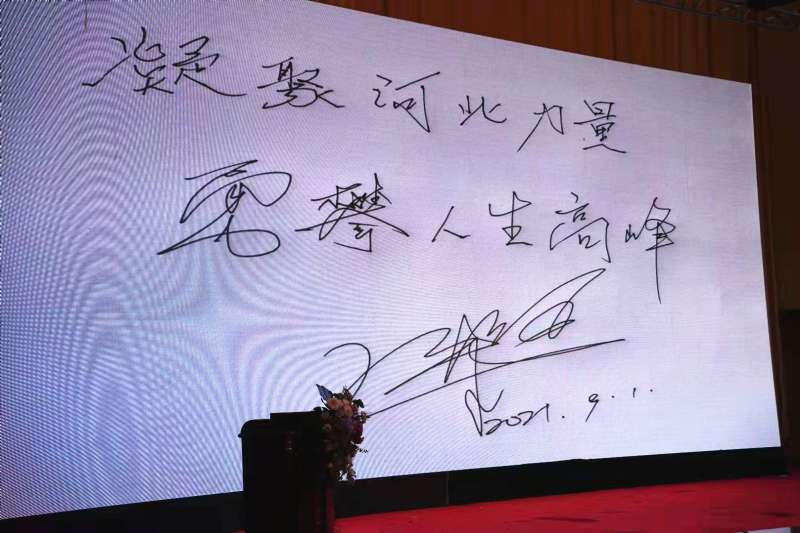 凝聚河北力量
勇攀人生高峰
2021.9.1.